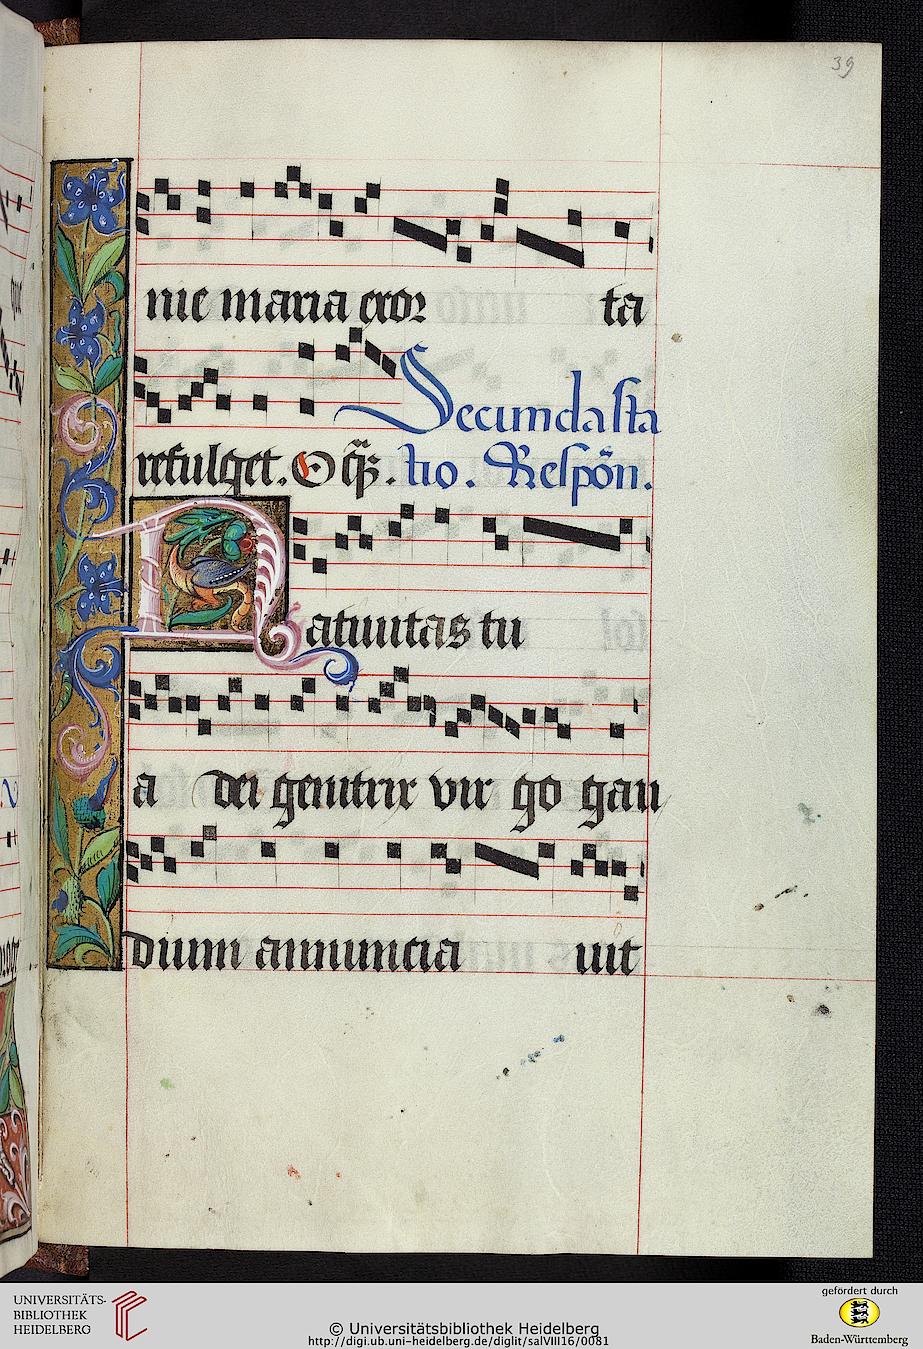 39
nie maria exor ta
refulget. O q̃ꝫ. Secunda sta
tio. Respõn.
Natiuitas tu
a dei genitrix vir go gau
dium annuncia uit
UNIVERSITÄTS-
BIBLIOTHEK
HEIDELBERG
© Universitätsbibliothek Heidelberg
http://digi.ub.uni-heidelberg.de/diglit/salVIII16/0081
gefördert durch
Baden-Württemberg